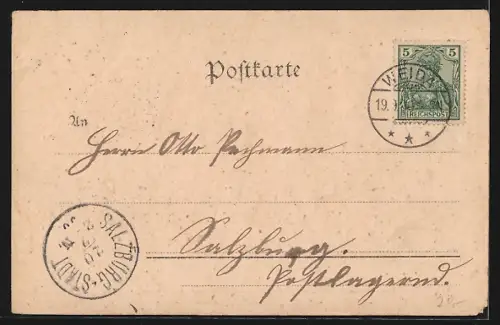 5 5
WEIDA
19.
REICHSPOST
Postkarte
An
Herrn Otto Pachmann
Salzburg.
Postlagernd.
SALZBURG-STADT